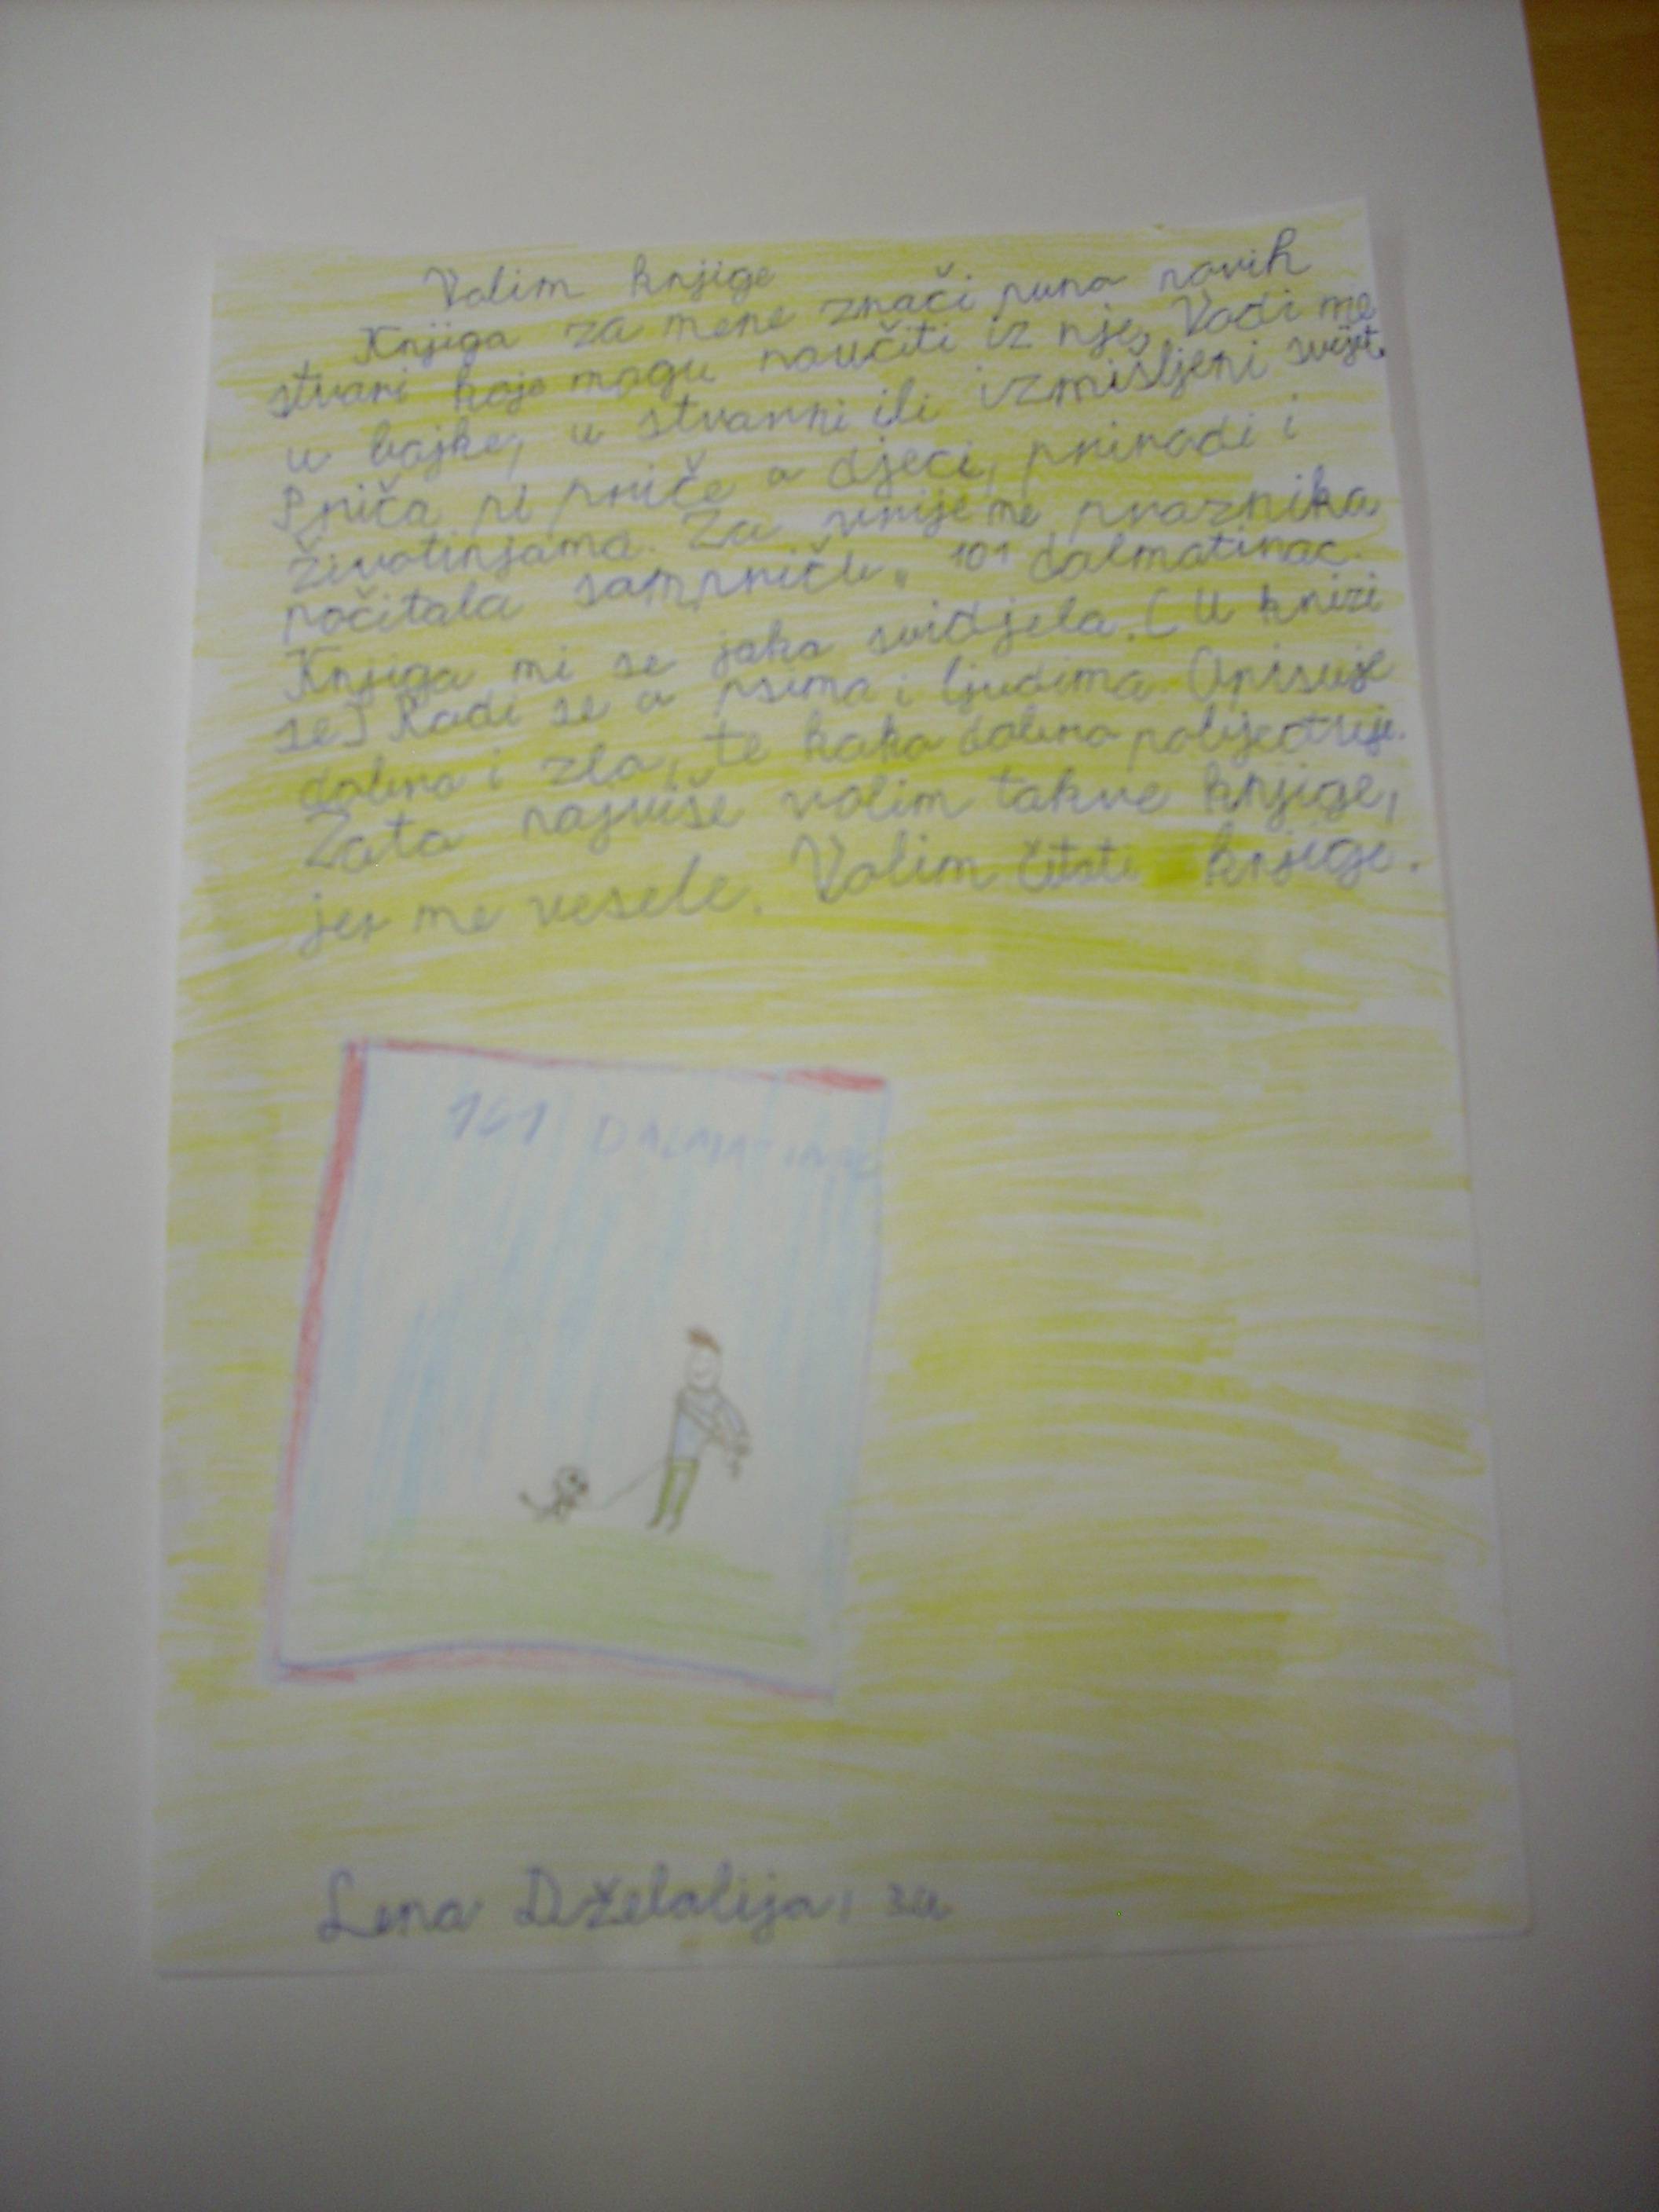 Volim knjige
Knjiga za mene znači puno novih
stvari koje mogu naučiti iz nje, Vodi me
u bajke, u stvarni ili izmišljeni svijet.
Priča mi priče o djeci, prirodi i
životinjama. Za vrijeme praznika
pročitala sam priču „ 101 dalmatinac.
Knjiga mi se jako svidjela. [ U knizi
se] Radi se o psima i ljudima. Opisuje
dobro i zlo, te kako dobro pobjeđuje.
Zato najviše volim takve knjige,
jer me vesele. Volim čitati knjige.
101 DALMATINAC
Lena Dželalija, 3a